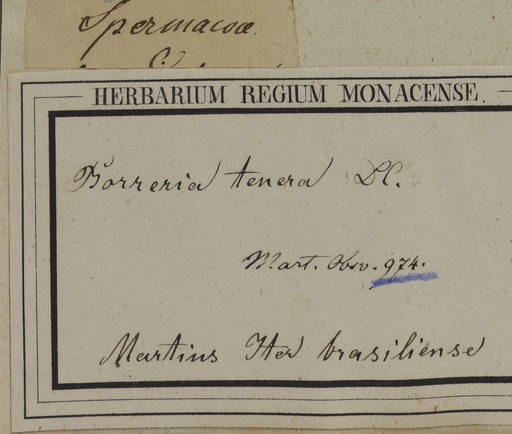 Spermacoce
HERBARIUM REGIUM MONACENSE.
Borreria tenera DC.
Mart. Obs. 974.
Martius Iter brasiliense